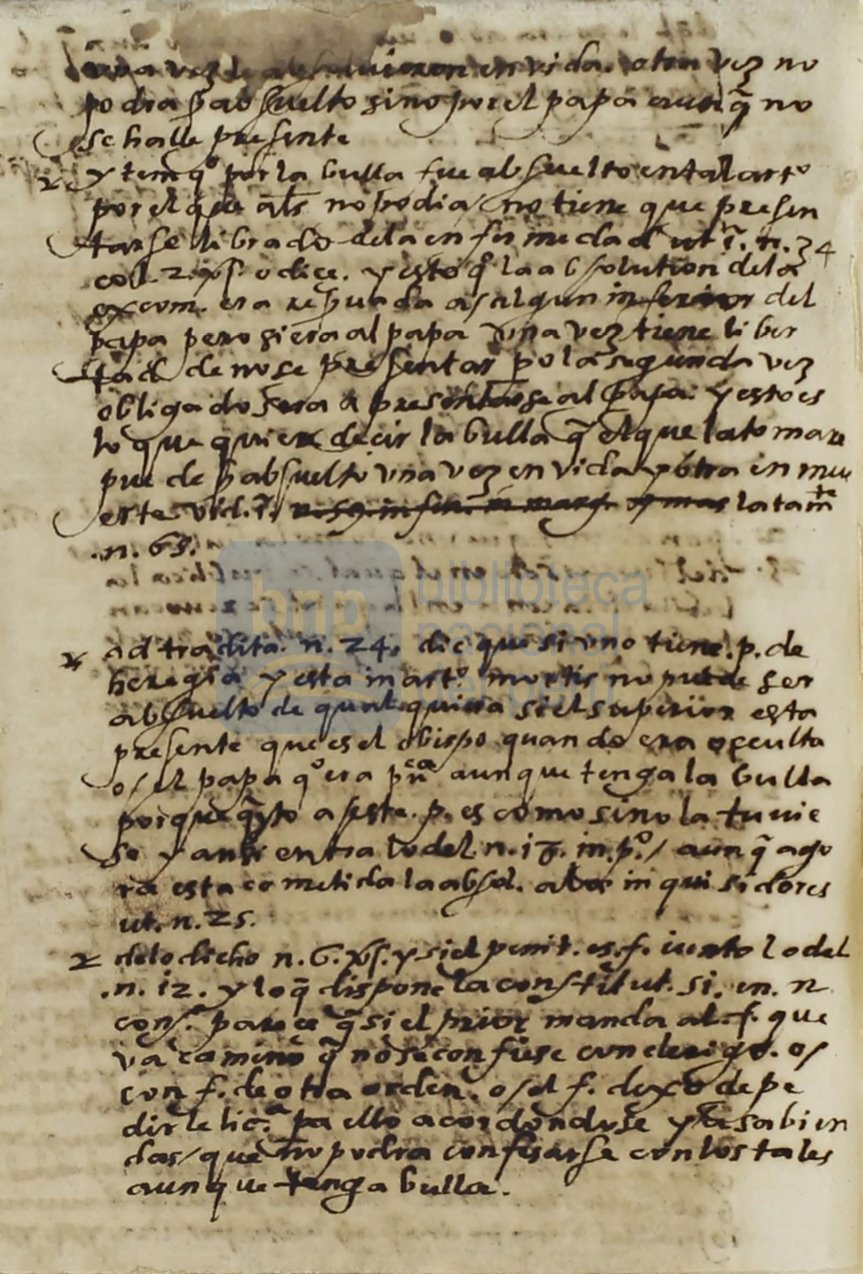 una vez le absoluieron en vida. otra vez no
podra p absuelto sino por el papa aunq̃ no
se halle presente
y tem qº por la bulla fue absuelto en tal artº
por el que als no podia no tiene que presen
tarse librado dela enfermedad ut n. 34
col. 2. o dice. y esto qº la absolution dela
excom. era a algun inferior del
papa pero si era al papa vna vez tiene liber
tad de no se presentar po la segunda vez
obligado sera a presentarse al papa. y esto es
lo que quiere decir la bulla q̃ el que la tomare
puede p absuelto vna vez en vida y otra en mu
erte vid. la tam̃
.n. 65.
biblioteca
nacional
bnp
ad tradita. n. 24. dic que si vno tiene. p. de
heregia y esta in artº mortis no puede ser
absuelto de si el superior esta
presente que es el obispo quando era occulta
o/ el papa qº era aunque tenga la bulla
porque a este. p. es como sino la tuuie
se y ansi entra lo del n. in. pº/ aunq̃ ago
ra esta cometida la absol. a los inquisidores
ut. n. 25.
delo dicho n. 6. y si el penit. es. f. iunto lo del
.n. 12. y loq̃ dispone la constitut. si. en. n
cons. parece q̃ si el prior manda al. f. que
va camino q̃ no se confiese con clerigo. o/
con f. de otra orden. o/ el f. dexo de pe
dirle licª. pa ello acordandose y a sabien
das/ que no podra confesarse con los tales
aunque tenga bulla.